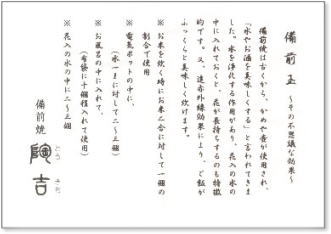 備前玉 ～その不思議な効果～
備前焼は古くから、かめや壺が使用され、
「水やお酒を美味しくする」と言われてきま
した。水を浄化する作用があり、花入の水の
中に入れておくと、花が長持ちするのも特徴
的です。又、遠赤外線効果により、ご飯が
ふっくらと美味しく炊けます。
※お米を炊く時にお米二合に対して一個の
割合で使用
※電気ポットの中に、
(水一ℓに対して二～三個)
※お風呂の中に入れて、
(布袋に十個程入れて使用)
※花入の水の中に二～三個
備前焼 陶吉
とう きち